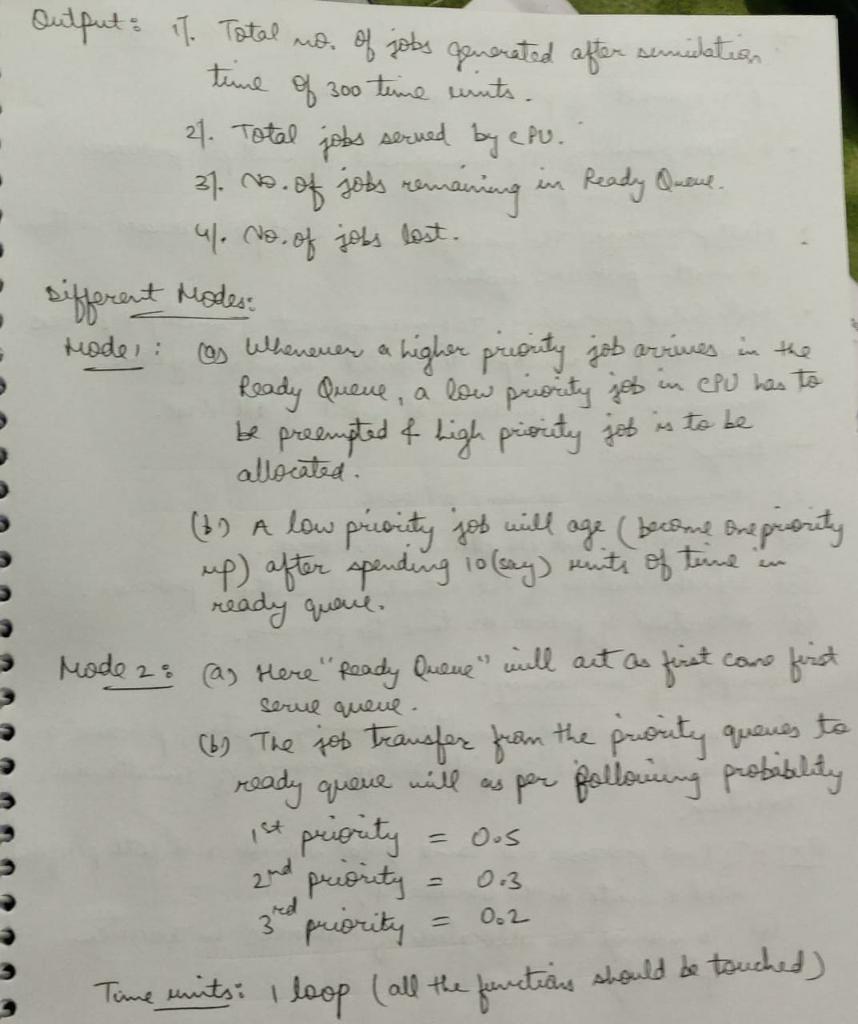 Output: 1). Total no. of jobs generated after simulation
time of 300 time units.
2). Total jobs served by CPU.
3). No. of jobs remaining in Ready Queue.
4). No. of jobs lost.
Different Modes:
Mode 1: (a) Whenever a higher priority job arrives in the
Ready Queue, a low priority job in CPU has to
be preempted & high priority job is to be
allocated.
(b) A low priority job will age (become one priority
up) after spending 10 (say) units of time in
ready queue.
Mode 2: (a) Here "Ready Queue" will act as first come first
serve queue.
(b) The job transfer from the priority queues to
ready queue will as per following probability
1st priority = 0.5
2nd priority = 0.3
3rd priority = 0.2
Time units: 1 loop (all the functions should be touched)